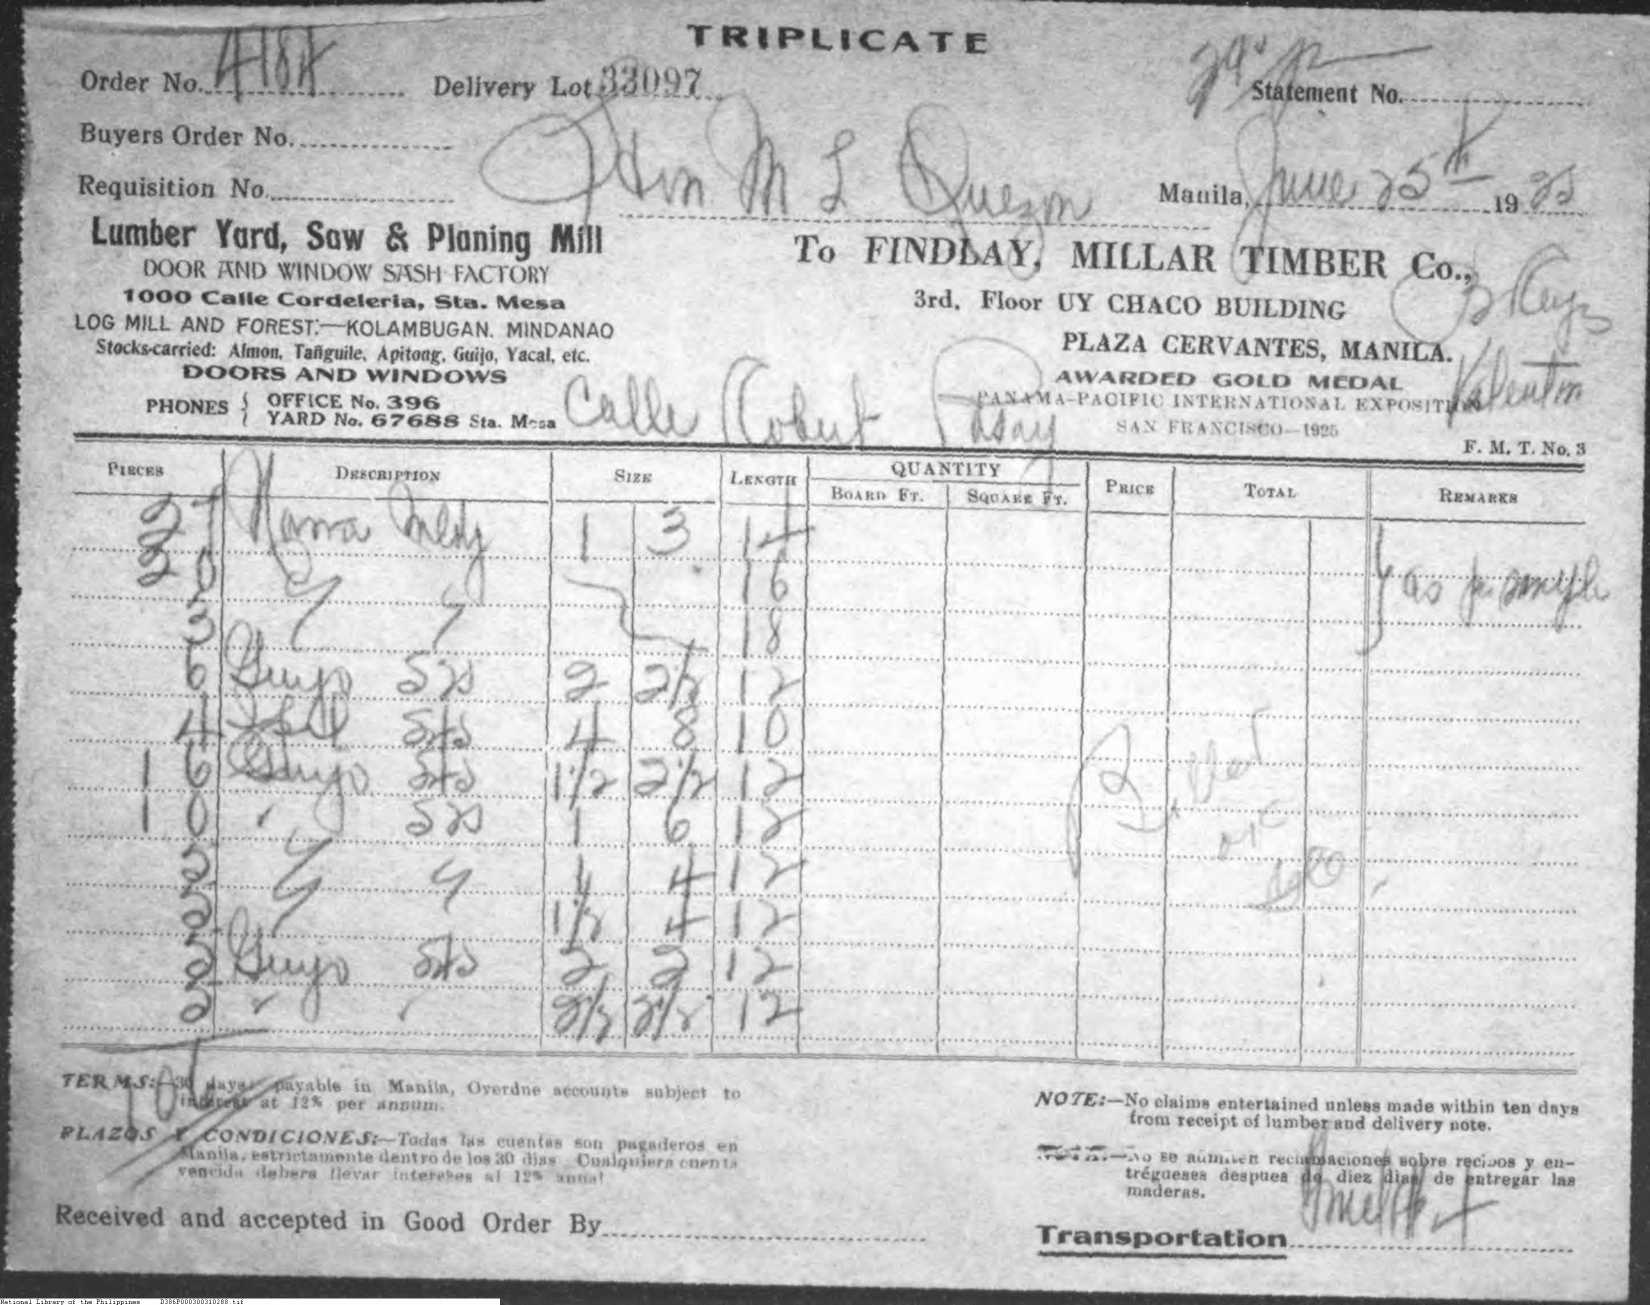 TRIPLICATE
Order No. 4184 Delivery Lot 33097 Statement No.
Buyers Order No.
Requisition No. Hon M L Quezon Manila, June 25th 1925
Lumber Yard, Saw & Planing Mill
DOOR AND WINDOW SASH FACTORY
1000 Calle Cordeleria, Sta. Mesa
LOG MILL AND FOREST:—KOLAMBUGAN. MINDANAO
Stocks-carried: Almon, Tañguile, Apitong, Guijo, Yacal, etc.
DOORS AND WINDOWS
PHONES { OFFICE No. 396
YARD No. 67688 Sta. Mesa
To FINDLAY, MILLAR TIMBER Co.,
3rd. Floor UY CHACO BUILDING
PLAZA CERVANTES, MANILA.
AWARDED GOLD MEDAL
PANAMA-PACIFIC INTERNATIONAL EXPOSITION
SAN FRANCISCO—1925
Calle Robert Pasay
F. M. T. No. 3
PIECES DESCRIPTION SIZE LENGTH QUANTITY PRICE TOTAL REMARKS
BOARD FT. SQUARE FT.
27 Narra Mldg 1 3 14
20 " " 16 as per sample
2 " " 18
6 Guijo S2S 2 2½ 12
4 S4S 4 8 10
16 Guijo S4S 1½ 2½ 12
10 " S2S 1 6 12
2 " " 1 4 12
2 1½ 4 12
2 Guijo S4S 2 2 12
2 " " 2½ 2½ 12
TERMS:—30 days payable in Manila, Overdue accounts subject to
interest at 12% per annum.
PLAZOS Y CONDICIONES:—Todas las cuentas son pagaderos en
Manila, estrictamente dentro de los 30 dias Cualquiera cuenta
vencida debera llevar intereses al 12% anual
NOTE:—No claims entertained unless made within ten days
from receipt of lumber and delivery note.
NOTA:—No se admiten reclamaciones sobre recibos y en-
trégueses despues de diez dias de entregar las
maderas.
Received and accepted in Good Order By
Transportation
National Library of the Philippines D386P000300310288.tif